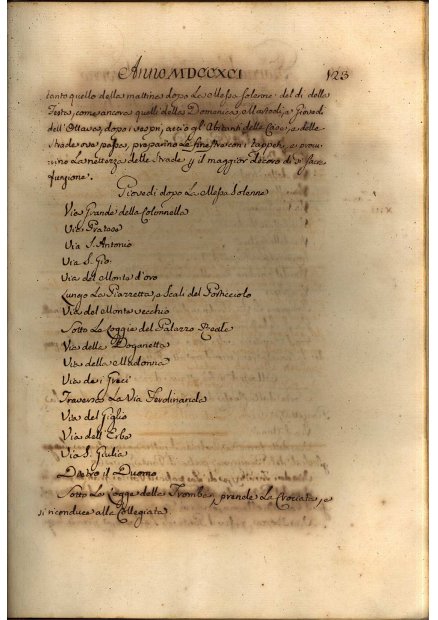 Anno MDCCXCI 123
tanto quello della mattina dopo La Messa Solenne del dì della
Festa, come ancora quelli della Domenica, Martedì, e Giovedì
dell'Ottava, dopo i vespri, acciò gl'Abitanti delle Case, e delle
Strade ove passa, preparino Le finestre con i tappeti, e procu
rino La nettezza delle Strade p il maggior decoro di sì sacra
funzione.
Giovedì dopo La Messa Solenne
Via Grande della Colonnella
Via
Via S. Antonio
Via S. Gio:
Via del Monte d'oro
Lungo La Piazzetta, e Scali del Porticciolo
Via del Monte vecchio
Sotto Le Loggie del Palazzo Reale
Via della Doganetta
Via della Madonna
Via de i Greci
Traversa La Via Ferdinanda
Via del Giglio
Via dell'Erbe
Via S. Giulia
Dietro il Duomo
Sotto Le Logge delle Trombe, prende La Crociata, e
si riconduce alla Collegiata.